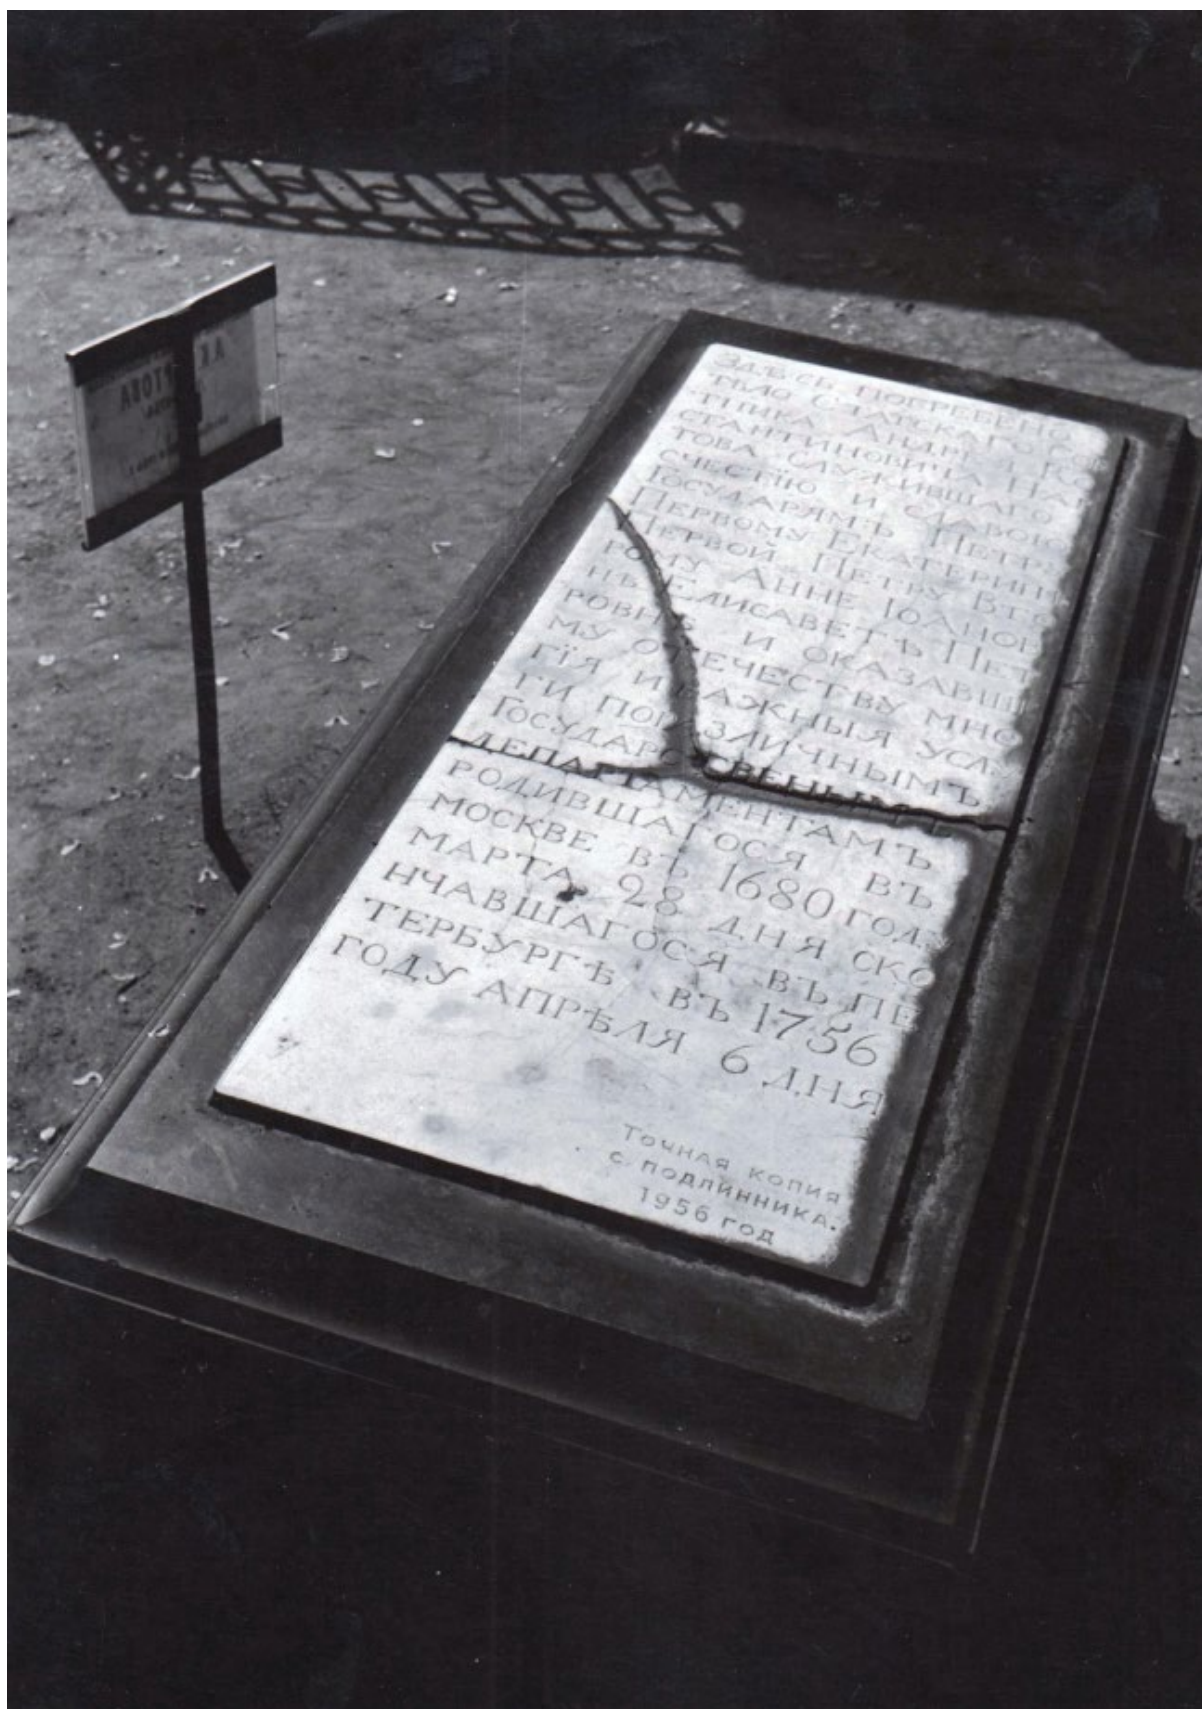 ЗДѢСЬ ПОГРЕБЕНО
ТѢЛО СТАТСКАГО СО
ТНИКА АНДРЕЯ КО
СТАНТИНОВИЧА НА
ТОВА СЛУЖИВШАГО
СЧЕСТІЮ И СЛАВОЮ
ГОСУДАРЯМЪ ПЕТР
ПЕРВОМУ ЕКАТЕРИН
ПЕРВОЙ ПЕТРУ ВТО
РОМУ АННЕ ІОАНОВ
НѢ ЕЛИСАВЕТѢ ПЕТ
РОВНѢ И ОКАЗАВШ
МУ ОТЕЧЕСТВУ МНО
ГІЯ И ВАЖНЫЯ УСЛУ
ГИ ПО РАЗЛИЧНЫМЪ
ГОСУДАРСТВЕНЫМЪ
ДЕПАРТАМЕНТАМЪ
РОДИВШАГОСЯ ВЪ
МОСКВЕ ВЪ 1680 ГОДУ
МАРТА 28 ДНЯ СКО
НЧАВШАГОСЯ ВЪ ПЕ
ТЕРБУРГѢ ВЪ 1756
ГОДУ АПРѢЛЯ 6 ДНЯ
ТОЧНАЯ КОПИЯ
С ПОДЛИННИКА.
1956 ГОД